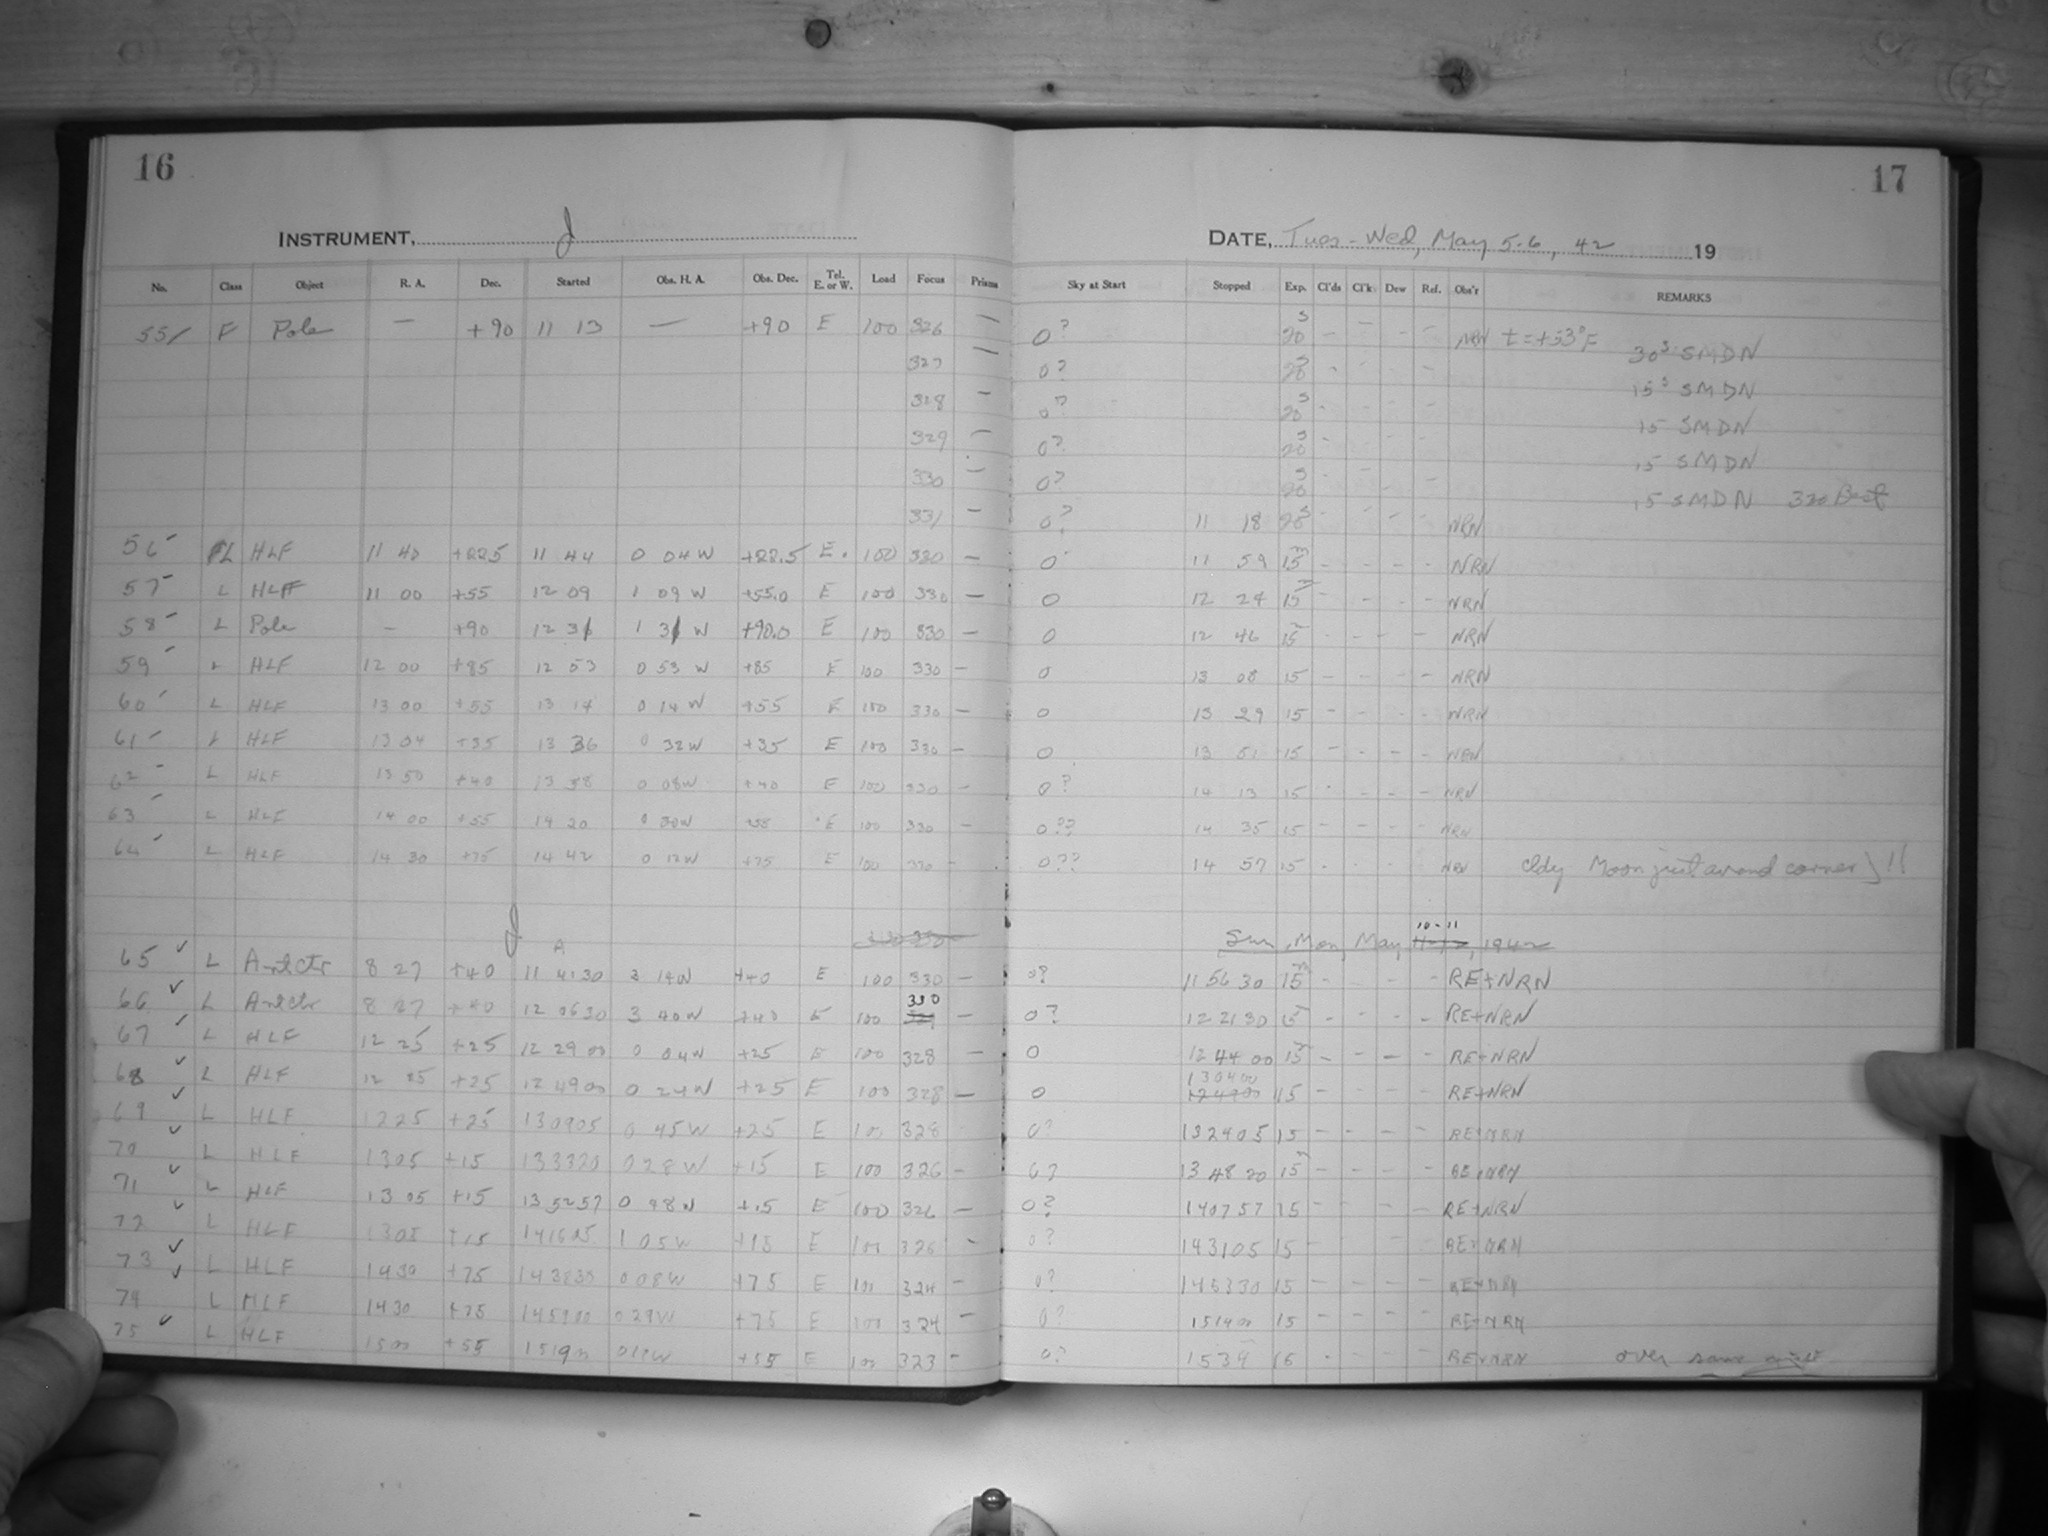 16
17
INSTRUMENT, J
DATE, Tues - Wed, May 5-6, 42 19
No. Class Object R. A. Dec. Started Obs. H. A. Obs. Dec. Tel. E. or W. Load Focus Prisms Sky at Start Stopped Exp. Cl'ds Cl'k Dew Ref. Obs'r REMARKS
55 F Pole — +90 11 13 — +90 E 100 326 — 0? 20s - - - - NRN t = +53°F
30s SMDN
327 — 0? 20s - - - -
15s SMDN
328 — 0? 20s - - - -
15 SMDN
329 — 0? 20s - - - -
15 SMDN
330 — 0? 20s - - - -
15 SMDN 330 Best
331 — 0? 11 18 20s - - - - NRN
56 L HLF 11 40 +22.5 11 44 0 04 W +22.5 E 100 330 0 11 59 15m - - - - NRN
57 L HLF 11 00 +55 12 09 1 09 W +55.0 E 100 330 — 0 12 24 15m - - - - NRN
58 L Pole - +90 12 31 1 31 W +90.0 E 100 330 — 0 12 46 15m - - - - NRN
59 L HLF 12 00 +85 12 53 0 53 W +85 E 100 330 — 0 13 08 15 - - - - NRN
60 L HLF 13 00 +55 13 14 0 14 W +55 E 100 330 — 0 13 29 15 - - - - NRN
61 L HLF 13 04 +35 13 36 0 32 W +35 E 100 330 — 0 13 51 15 - - - - NRN
62 L HLF 13 50 +40 13 58 0 08 W +40 E 100 330 — 0? 14 13 15 - - - - NRN
63 L HLF 14 00 +55 14 20 0 20 W +55 E 100 330 — 0?? 14 35 15 - - - - NRN
64 L HLF 14 30 +75 14 42 0 12 W +75 E 100 330 - 0?? 14 57 15 - - - - NRN cldy Moon just around corner!!
J A Sun, Mon, May 10-11, 1942
65 L Antctr 8 27 +40 11 41 30 3 14 W +40 E 100 330 — 0? 11 56 30 15m - - - - RE+NRN
66 L Antctr 8 27 +40 12 06 30 3 40 W +40 E 100 330 — 0? 12 21 30 15 - - - - RE+NRN
67 L HLF 12 25 +25 12 29 00 0 04 W +25 E 100 328 — 0 12 44 00 15m - - - - RE+NRN
68 L HLF 12 25 +25 12 49 00 0 24 W +25 E 100 328 — 0 13 04 00 15 - - - - RE+NRN
69 L HLF 12 25 +25 13 09 05 0 45 W +25 E 100 328 0? 13 24 05 15 - - - - RE+NRN
70 L HLF 13 05 +15 13 33 20 0 28 W +15 E 100 326 - 0? 13 48 20 15m - - - - RE+NRN
71 L HLF 13 05 +15 13 52 57 0 48 W +15 E 100 326 — 0? 14 07 57 15 - - - - RE+NRN
72 L HLF 13 05 +15 14 16 05 1 05 W +15 E 100 326 - 0? 14 31 05 15 RE+NRN
73 L HLF 14 30 +75 14 38 30 0 08 W +75 E 100 324 - 0? 14 53 30 15 - - - - RE+NRN
74 L HLF 14 30 +75 14 59 00 0 29 W +75 E 100 324 — 0? 15 14 00 15 - - - - RE+NRN
75 L HLF 15 00 +55 15 19 00 +55 E 100 323 - 0? 15 34 - - - - RE+NRN over some